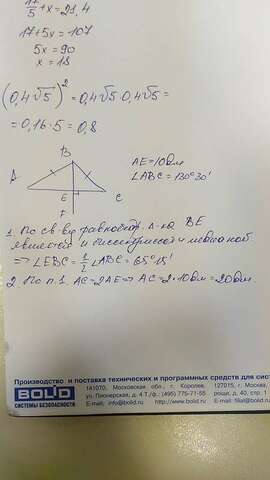 17/5 + x = 21,4
17 + 5x = 107
5x = 90
x = 18
(0,4√5)² = 0,4√5·0,4√5 =
= 0,16·5 = 0,8
B
A
E
C
F
AE = 10дм
∠ABC = 130°30'
1. По св-ву равнобедр. Δ-ка BE
является и биссектрисой и медианой.
⇒ ∠EBC = 1/2 ∠ABC = 65°15'
2. По п.1. AC = 2AE ⇒ AC = 2·10дм = 20дм.
Производство и поставка технических и программных средств для сис
BOLID
СИСТЕМЫ БЕЗОПАСНОСТИ
141070, Московская обл., г. Королев,
ул. Пионерская, д.4 Т./ф.: (495) 775-71-55
E-mail: info@bolid.ru http://bolid.ru
127015, г. Москва,
рощи, д. 40, стр. 1
E-mail: filial@bolid.ru